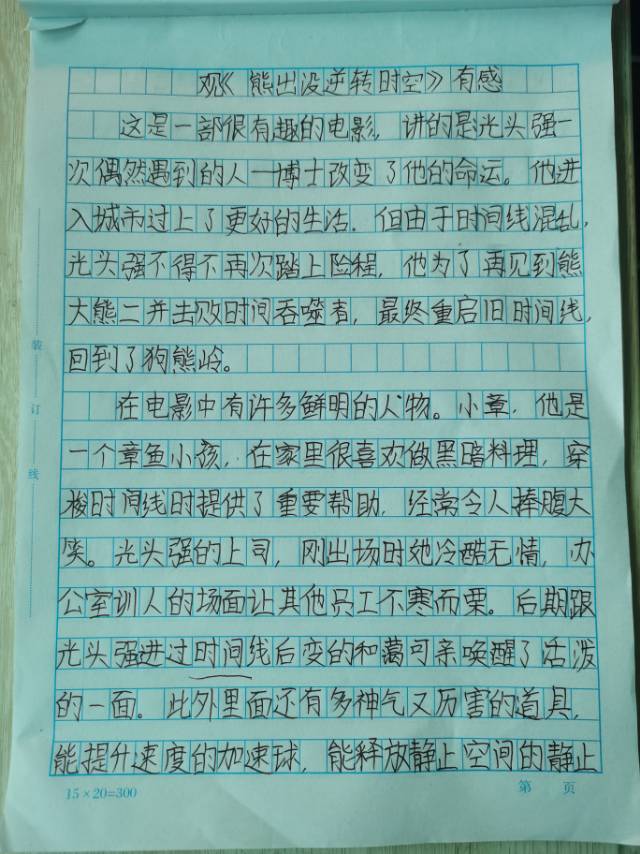 观《熊出没逆转时空》有感
这是一部很有趣的电影，讲的是光头强一
次偶然遇到的人一博士改变了他的命运。他进
入城市过上了更好的生活．但由于时间线混乱，
光头强不得不再次踏上险程，他为了再见到熊
大熊二并击败时间吞噬者，最终重启旧时间线，
回到了狗熊岭。
在电影中有许多鲜明的人物。小章，他是
一个章鱼小孩，在家里很喜欢做黑暗料理，穿
梭时间线时提供了重要帮助，经常令人捧腹大
笑。光头强的上司，刚出场时她冷酷无情，办
公室训人的场面让其他员工不寒而栗。后期跟
光头强进过时间线后变的和蔼可亲唤醒了活泼
的一面。此外里面还有多神气又厉害的道具，
能提升速度的加速球，能释放静止空间的静止
装
订
线
15×20=300
第 页